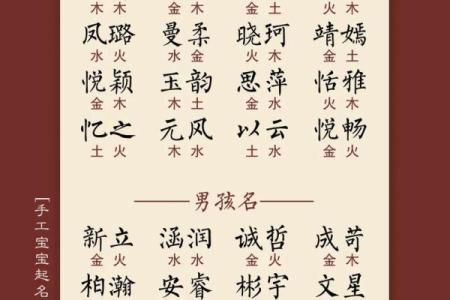 木 木 金 木 金 土 火 木
凤璐 曼柔 晓珂 靖嫣
水 火 水 金 火 木 金 土
悦颖 玉韵 思萍 恬雅
金 木 木 土 金 木 金 木
忆之 元风 以云 悦畅
土 火 木 水 土 水 金 火
男孩名
新立 涵润 诚哲 成苛
金 火 水 水 金 火 金 木
柏瀚 安睿 彬宇 文星
[手工宝宝起名